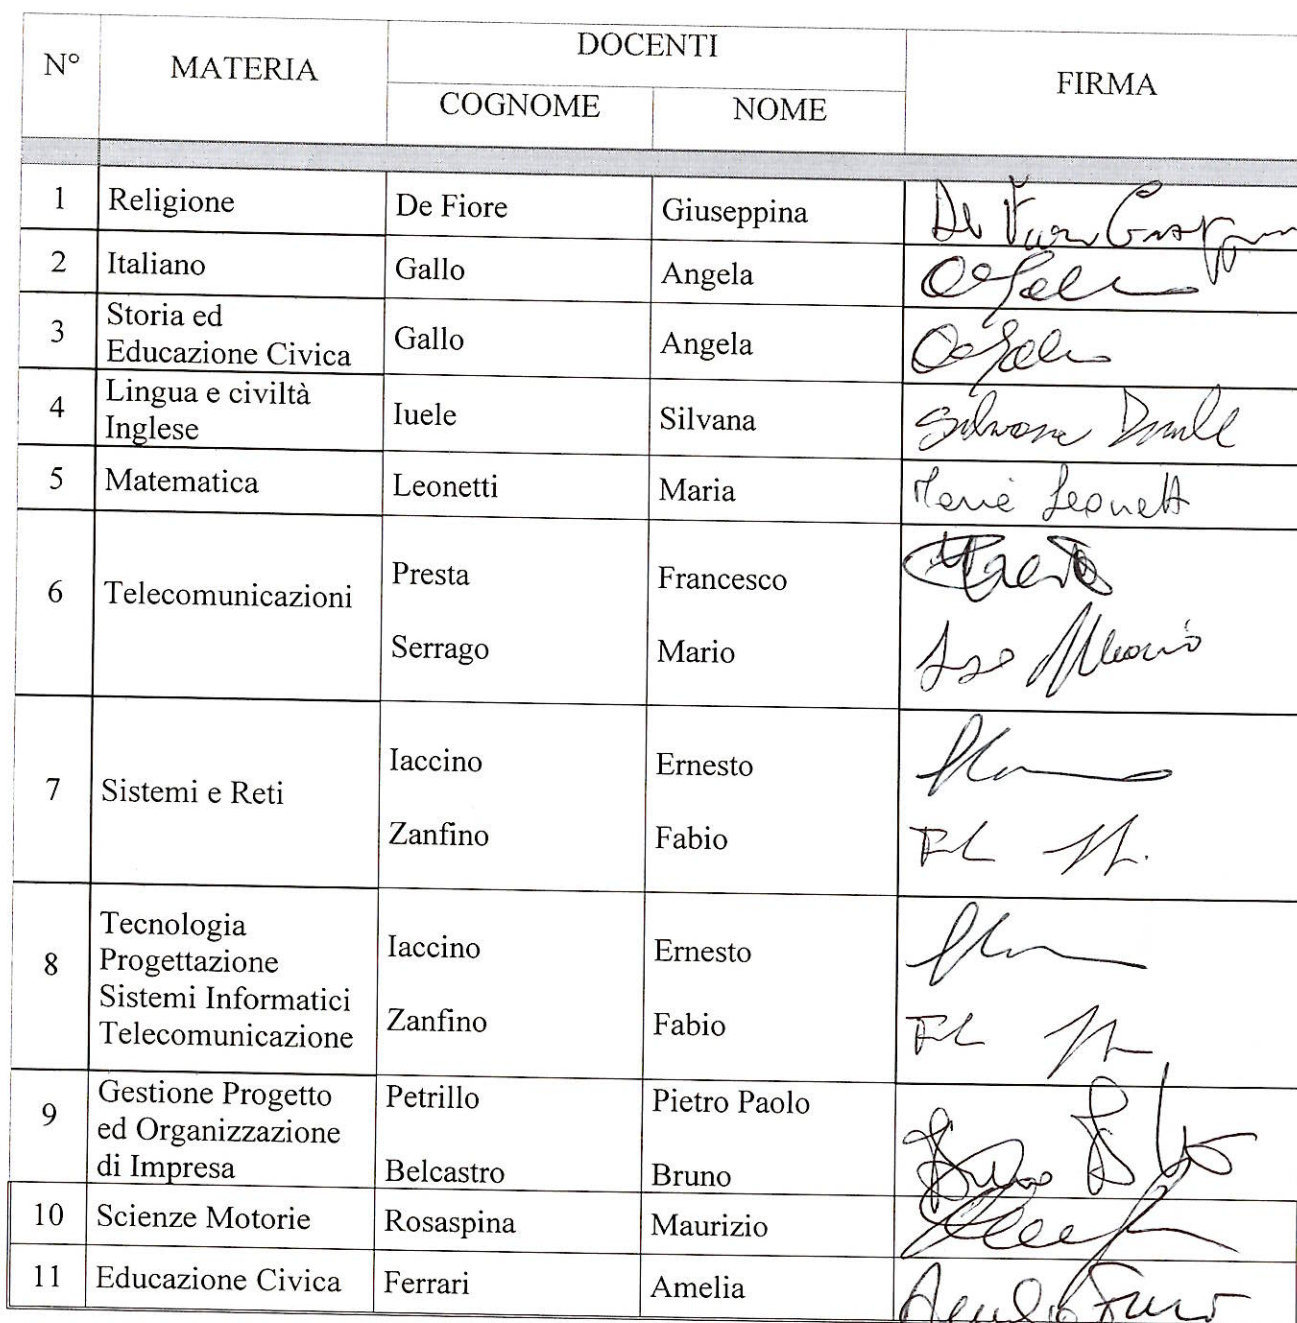 N° MATERIA DOCENTI FIRMA
COGNOME NOME
1 Religione De Fiore Giuseppina De Fiore Giuseppina
2 Italiano Gallo Angela
3 Storia ed Educazione Civica Gallo Angela
4 Lingua e civiltà Inglese Iuele Silvana Silvana Iuele
5 Matematica Leonetti Maria Maria Leonetti
6 Telecomunicazioni Presta Francesco
Serrago Mario
7 Sistemi e Reti Iaccino Ernesto
Zanfino Fabio
8 Tecnologia Progettazione Sistemi Informatici Telecomunicazione Iaccino Ernesto
Zanfino Fabio
9 Gestione Progetto ed Organizzazione di Impresa Petrillo Pietro Paolo
Belcastro Bruno Bruno
10 Scienze Motorie Rosaspina Maurizio
11 Educazione Civica Ferrari Amelia